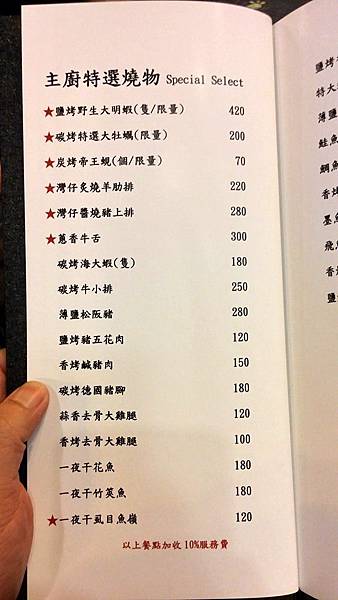 主廚特選燒物 Special Select
★鹽烤野生大明蝦(隻/限量) 420
★碳烤特選大牡蠣(限量) 200
★炭烤帝王蜆(個/限量) 70
★灣仔炙燒羊肋排 220
★灣仔醬燒豬上排 280
★蔥香牛舌 300
碳烤海大蝦(隻) 180
碳烤牛小排 250
薄鹽松阪豬 280
鹽烤豬五花肉 120
香烤鹹豬肉 150
碳烤德國豬腳 180
蒜香去骨大雞腿 120
香烤去骨大雞腿 100
一夜干花魚 180
一夜干竹筴魚 180
★一夜干虱目魚嶺 120
以上餐點加收10%服務費
鹽烤
特大
薄鹽
鮭魚
鯛魚
香烤
墨魚
飛魚
香
鹽